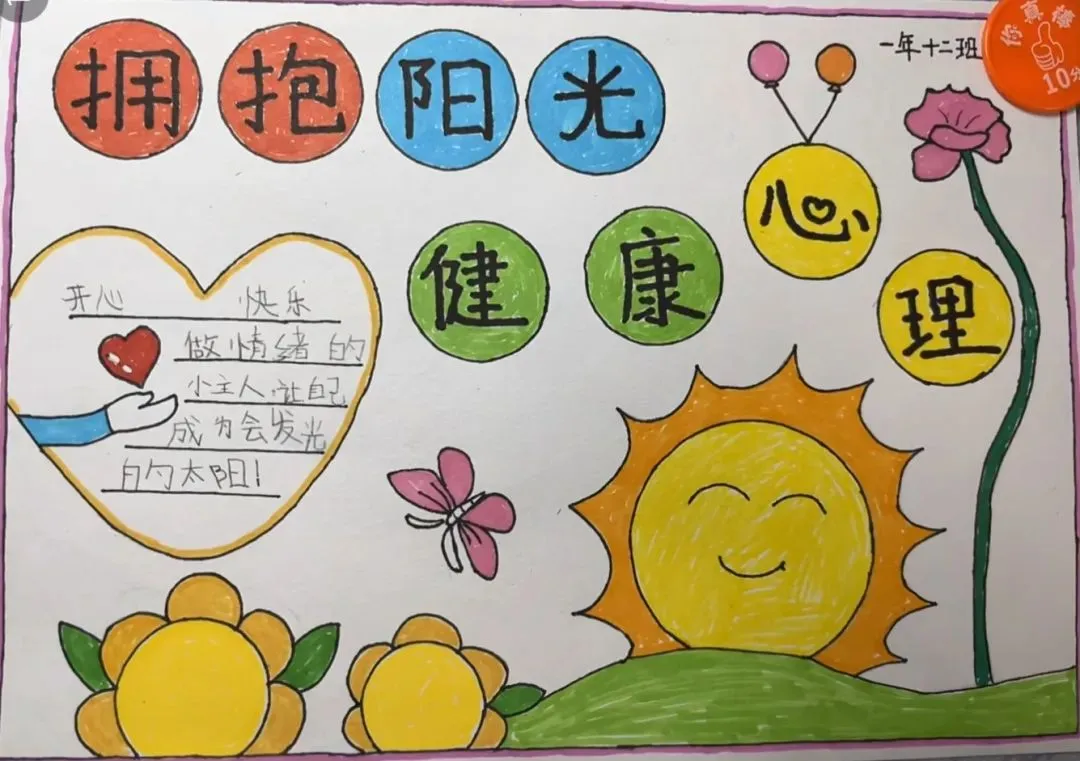 拥抱阳光
一年十二班
你真棒
10分
健康
心理
开心 快乐
做情绪的
小主人,让自己
成为会发光
的太阳!